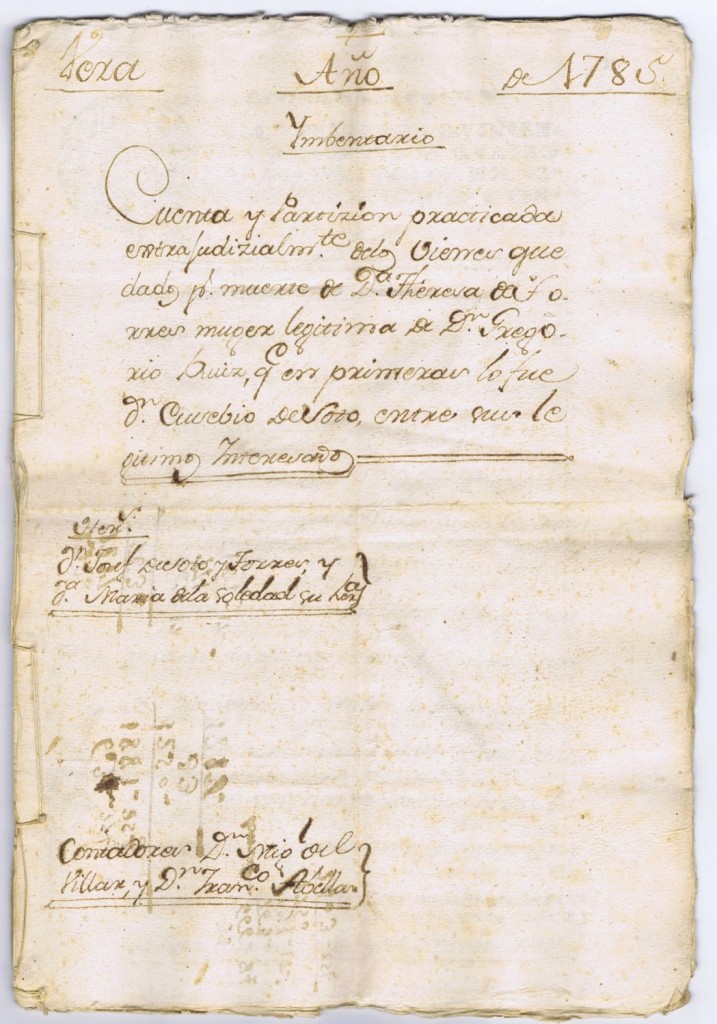 Vera Año de 1785
Ymbentario
Cuenta y Partizion practicada
extrajudizialm.te delos vienes que
dados p.r muerte de D.ª Theresa de To-
rres muger legitima de D.n Grego-
rio Ruiz, q.e en primeras lo fue
d.n Eusebio de Soto, entre sus le
gitimos Interesados
d.n Josef de Soto, y Torres, y
d.ª Maria dela Soledad su her.ª
Contadores D.n Mig.l del
Villar, y D.n Fran.co Abellan